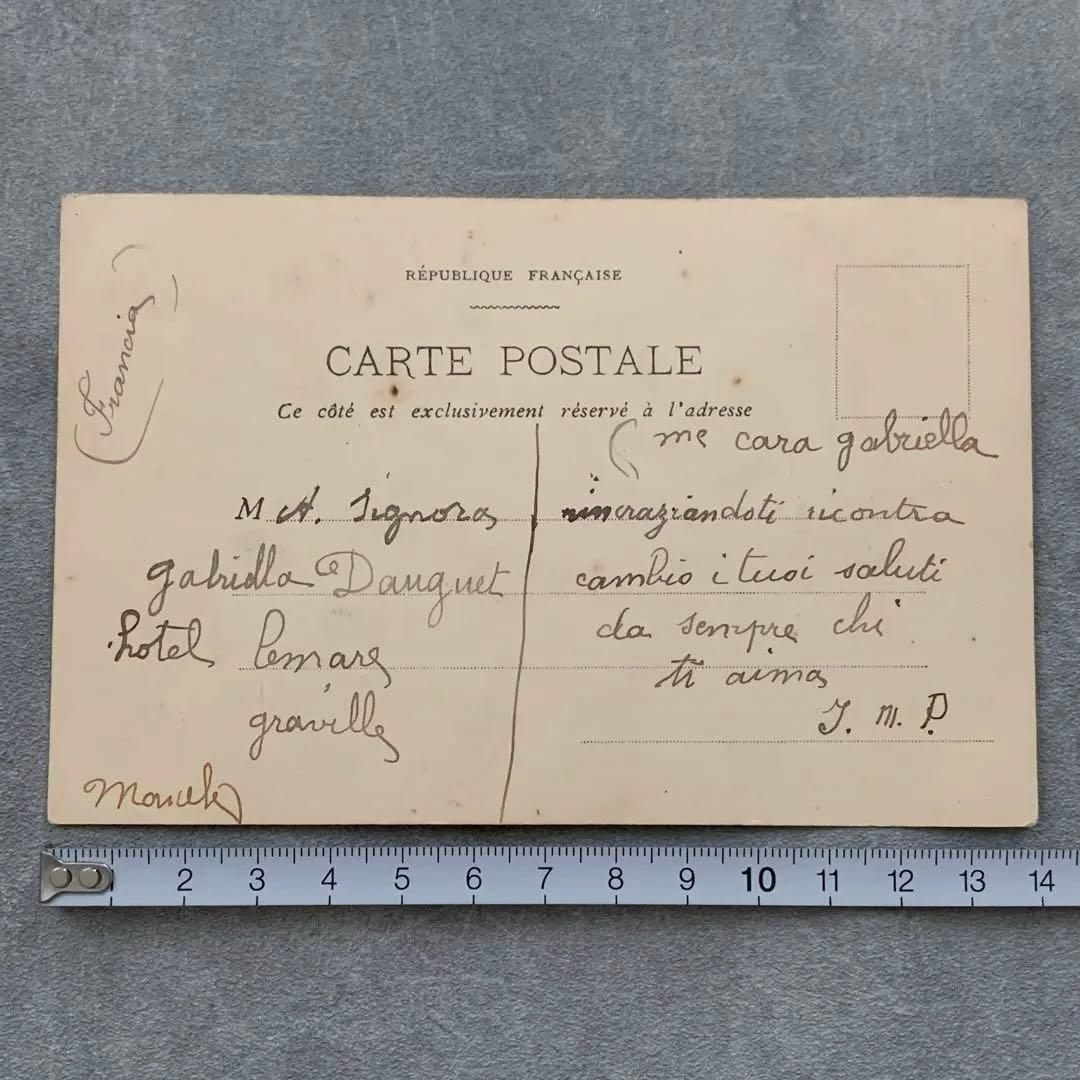 RÉPUBLIQUE FRANÇAISE
CARTE POSTALE
Ce côté est exclusivement réservé à l'adresse
(Francia)
M A. Signora
gabriella Dauguet
hotel lemare
graville
me cara gabriella
ricontra
cambio i tuoi saluti
da sempre chi
ti aima
J. M. P.
2 3 4 5 6 7 8 9 10 11 12 13 14